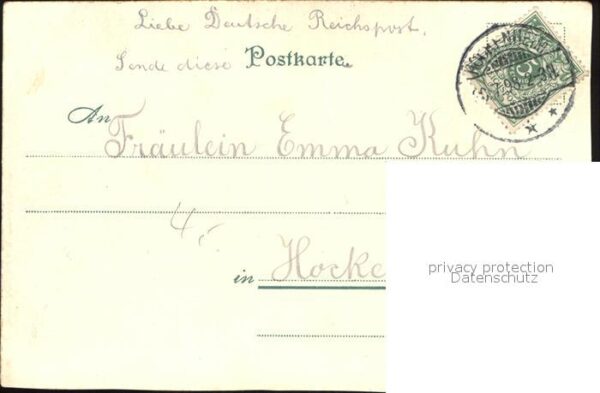 Liebe Deutsche Reichspost.
Sende diese Postkarte.
An Fräulein Emma Kuhn
4,-
in Hocke
privacy protection
Datenschutz